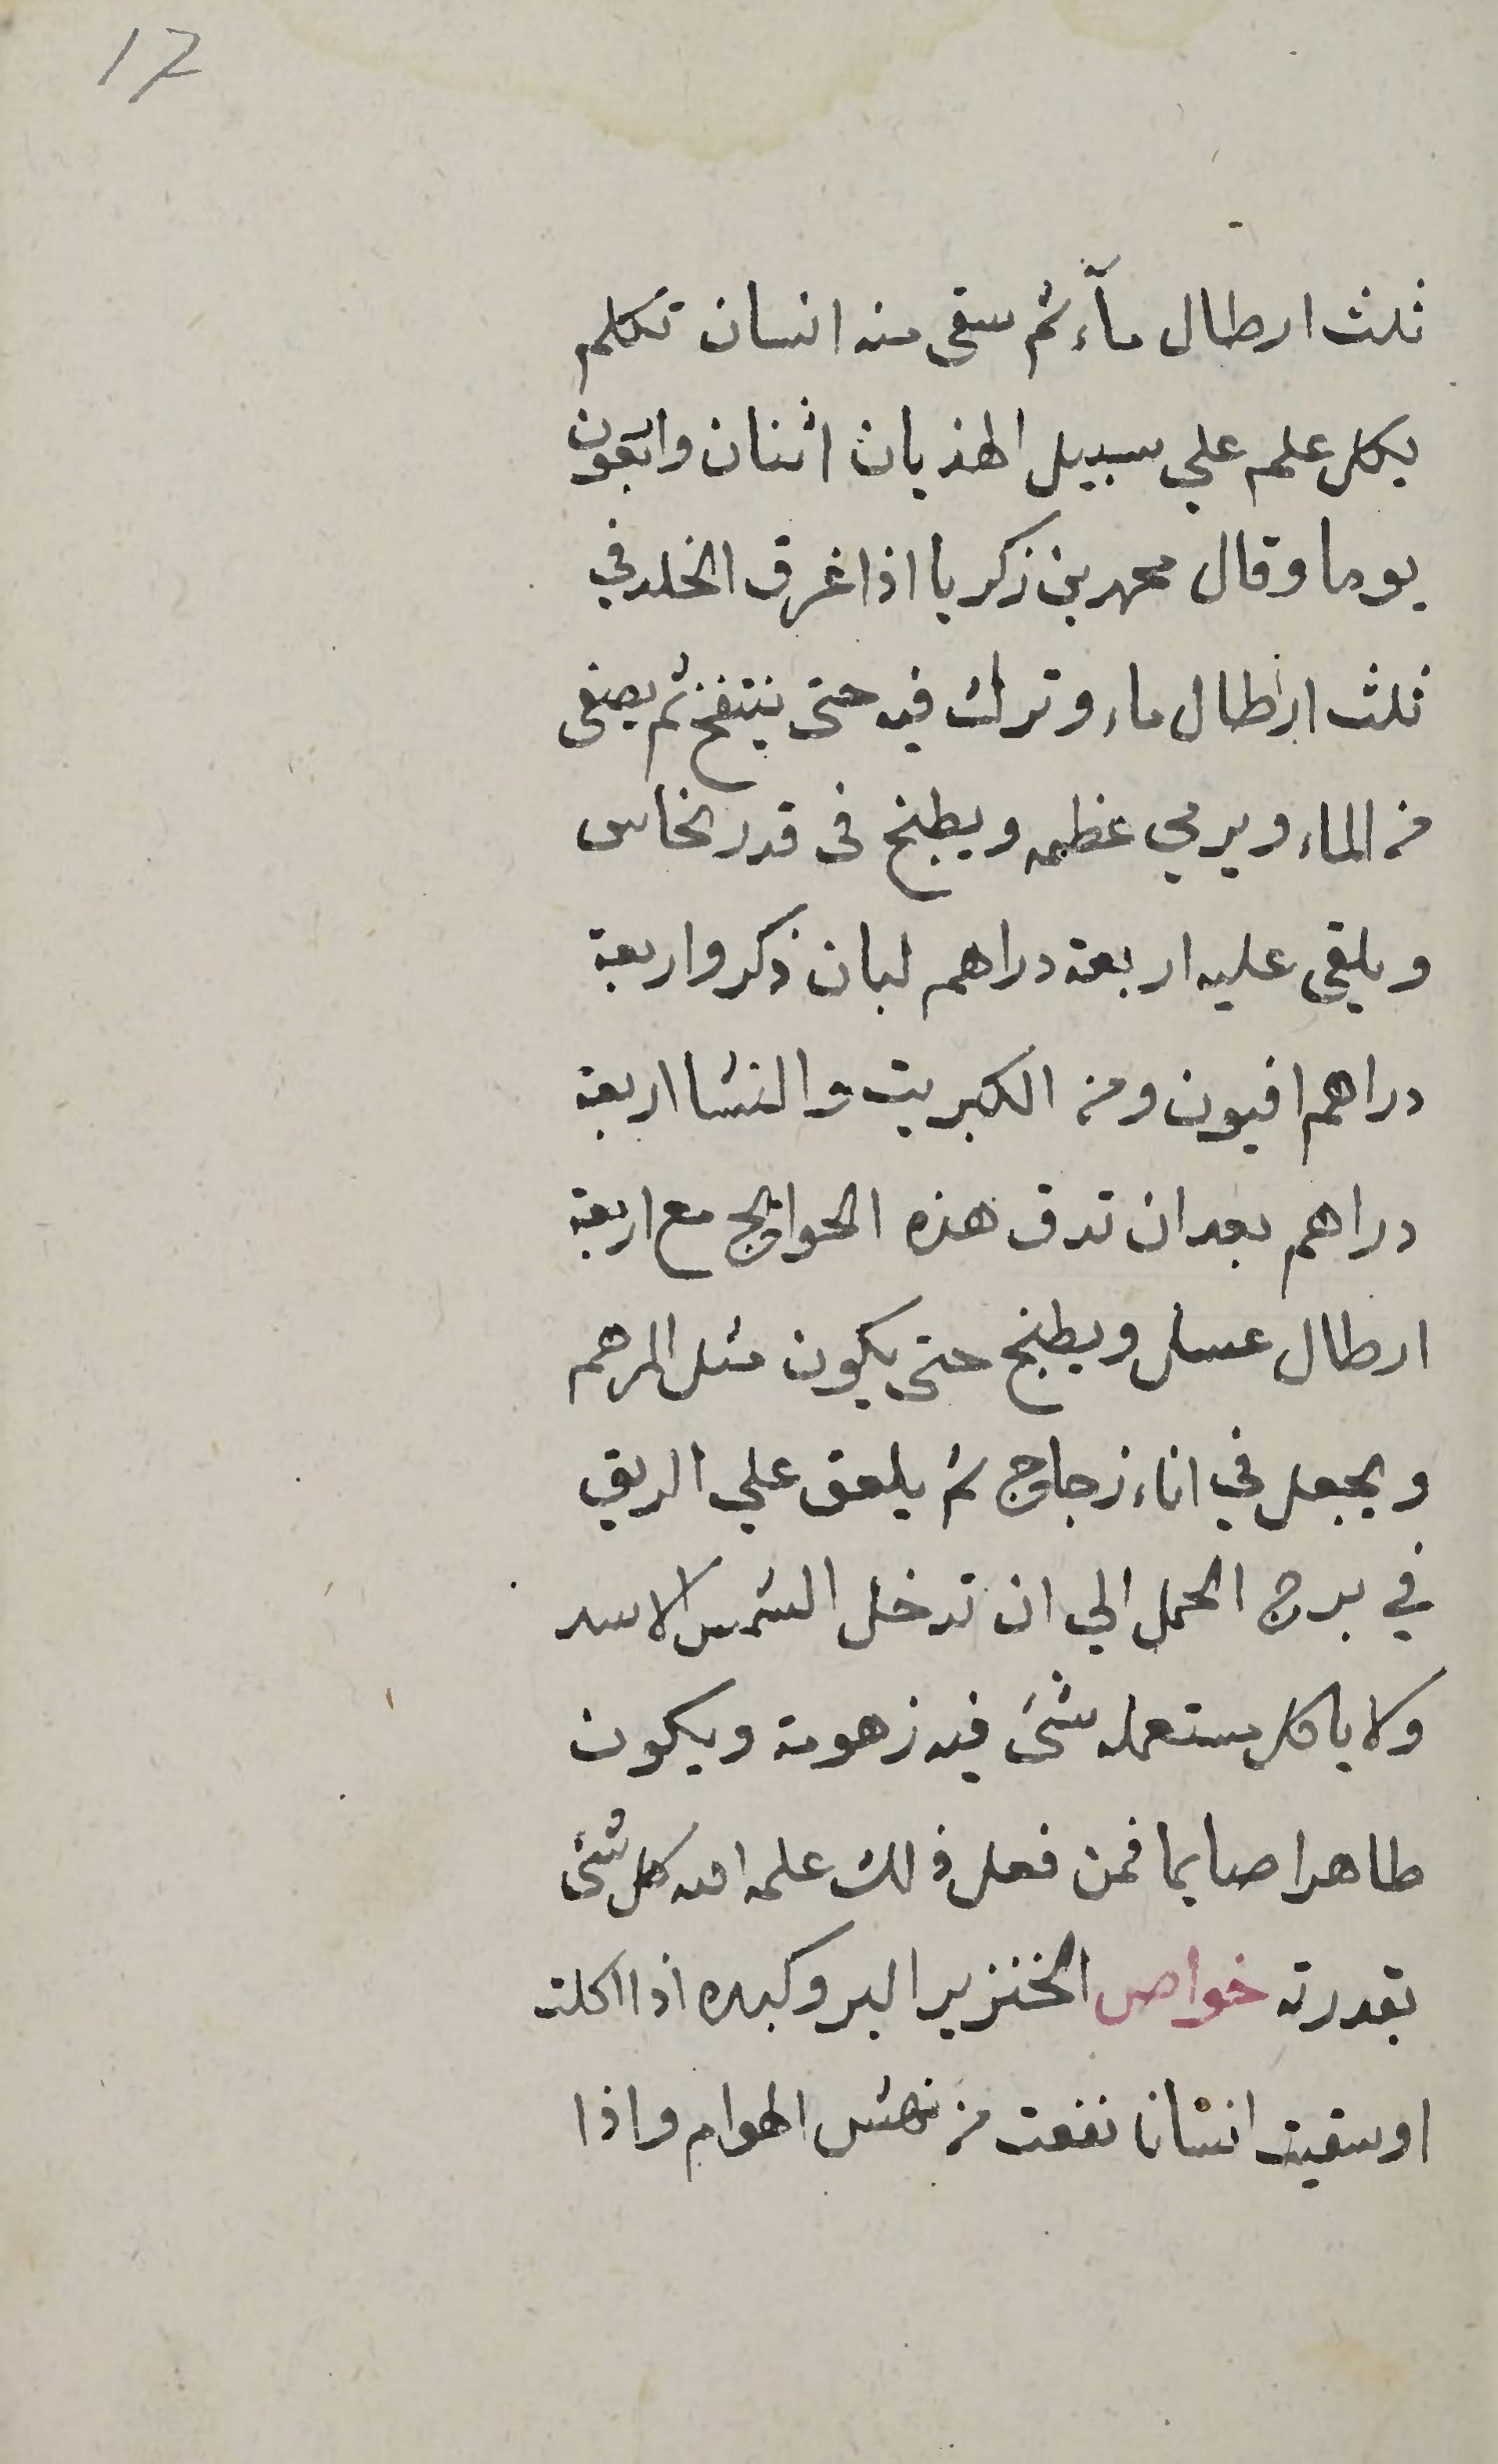 17
ثلث ارطال مآء ثم سقى منه انسان تكلم
بكل علم علي سبيل الهذيان اثنان واربعون
يوما وقال محمد بن زكريا اذا غرق الخلد في
ثلث ارطال ماء وترك فيه حتى ينتفخ ثم يصفى
من الماء ويرمي عظمه ويطبخ في قدر نحاس
ويلقى عليه اربعة دراهم لبان ذكر واربعة
دراهم افيون ومن الكبريت والنشا اربعة
دراهم بعد ان تدق هذه الحوايج مع اربعة
ارطال عسل ويطبخ حتى يكون مثل المرهم
ويجعل في اناء زجاج ثم يلعق علي الريق
في برج الحمل الي ان تدخل الشمس الاسد
ولا ياكل مستعمله شئ فيه زهومة ويكون
طاهرا صايما فمن فعل ذلك علمه الله كل شئ
بقدرته خواص الخنزير البر وكبده اذا اكلته
او سقيت انسانا نفعت من نهش الهوام واذا